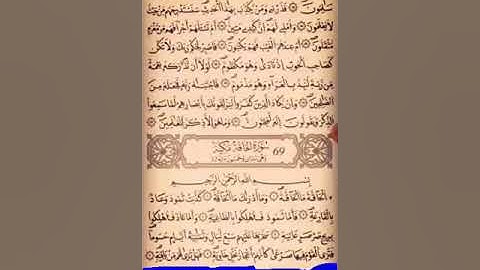 سَٰلِمُونَ ۝ فَذَرْنِي وَمَن يُكَذِّبُ بِهَٰذَا الْحَدِيثِ سَنَسْتَدْرِجُهُم مِّنْ حَيْثُ
لَا يَعْلَمُونَ ۝ وَأُمْلِي لَهُمْ إِنَّ كَيْدِي مَتِينٌ ۝ أَمْ تَسْـَٔلُهُمْ أَجْرًا فَهُم مِّن مَّغْرَمٍ
مُّثْقَلُونَ ۝ أَمْ عِندَهُمُ الْغَيْبُ فَهُمْ يَكْتُبُونَ ۝ فَاصْبِرْ لِحُكْمِ رَبِّكَ وَلَا تَكُن
كَصَاحِبِ الْحُوتِ إِذْ نَادَىٰ وَهُوَ مَكْظُومٌ ۝ لَّوْلَا أَن تَدَارَكَهُ نِعْمَةٌ
مِّن رَّبِّهِ لَنُبِذَ بِالْعَرَاءِ وَهُوَ مَذْمُومٌ ۝ فَاجْتَبَاهُ رَبُّهُ فَجَعَلَهُ مِنَ
الصَّالِحِينَ ۝ وَإِن يَكَادُ الَّذِينَ كَفَرُوا لَيُزْلِقُونَكَ بِأَبْصَارِهِمْ لَمَّا سَمِعُوا
الذِّكْرَ وَيَقُولُونَ إِنَّهُ لَمَجْنُونٌ ۝ وَمَا هُوَ إِلَّا ذِكْرٌ لِّلْعَالَمِينَ ۝
69 سُورَةُ الْحَاقَّةِ مَكِّيَّة
بِسْمِ اللَّهِ الرَّحْمَٰنِ الرَّحِيمِ
الْحَاقَّةُ ۝ مَا الْحَاقَّةُ ۝ وَمَا أَدْرَاكَ مَا الْحَاقَّةُ ۝ كَذَّبَتْ ثَمُودُ وَعَادٌ
بِالْقَارِعَةِ ۝ فَأَمَّا ثَمُودُ فَأُهْلِكُوا بِالطَّاغِيَةِ ۝ وَأَمَّا عَادٌ فَأُهْلِكُوا
بِرِيحٍ صَرْصَرٍ عَاتِيَةٍ ۝ سَخَّرَهَا عَلَيْهِمْ سَبْعَ لَيَالٍ وَثَمَانِيَةَ أَيَّامٍ حُسُومًا
فَتَرَى الْقَوْمَ فِيهَا صَرْعَىٰ كَأَنَّهُمْ أَعْجَازُ نَخْلٍ خَاوِيَةٍ ۝ فَهَلْ تَرَىٰ لَهُم مِّن بَاقِيَةٍ